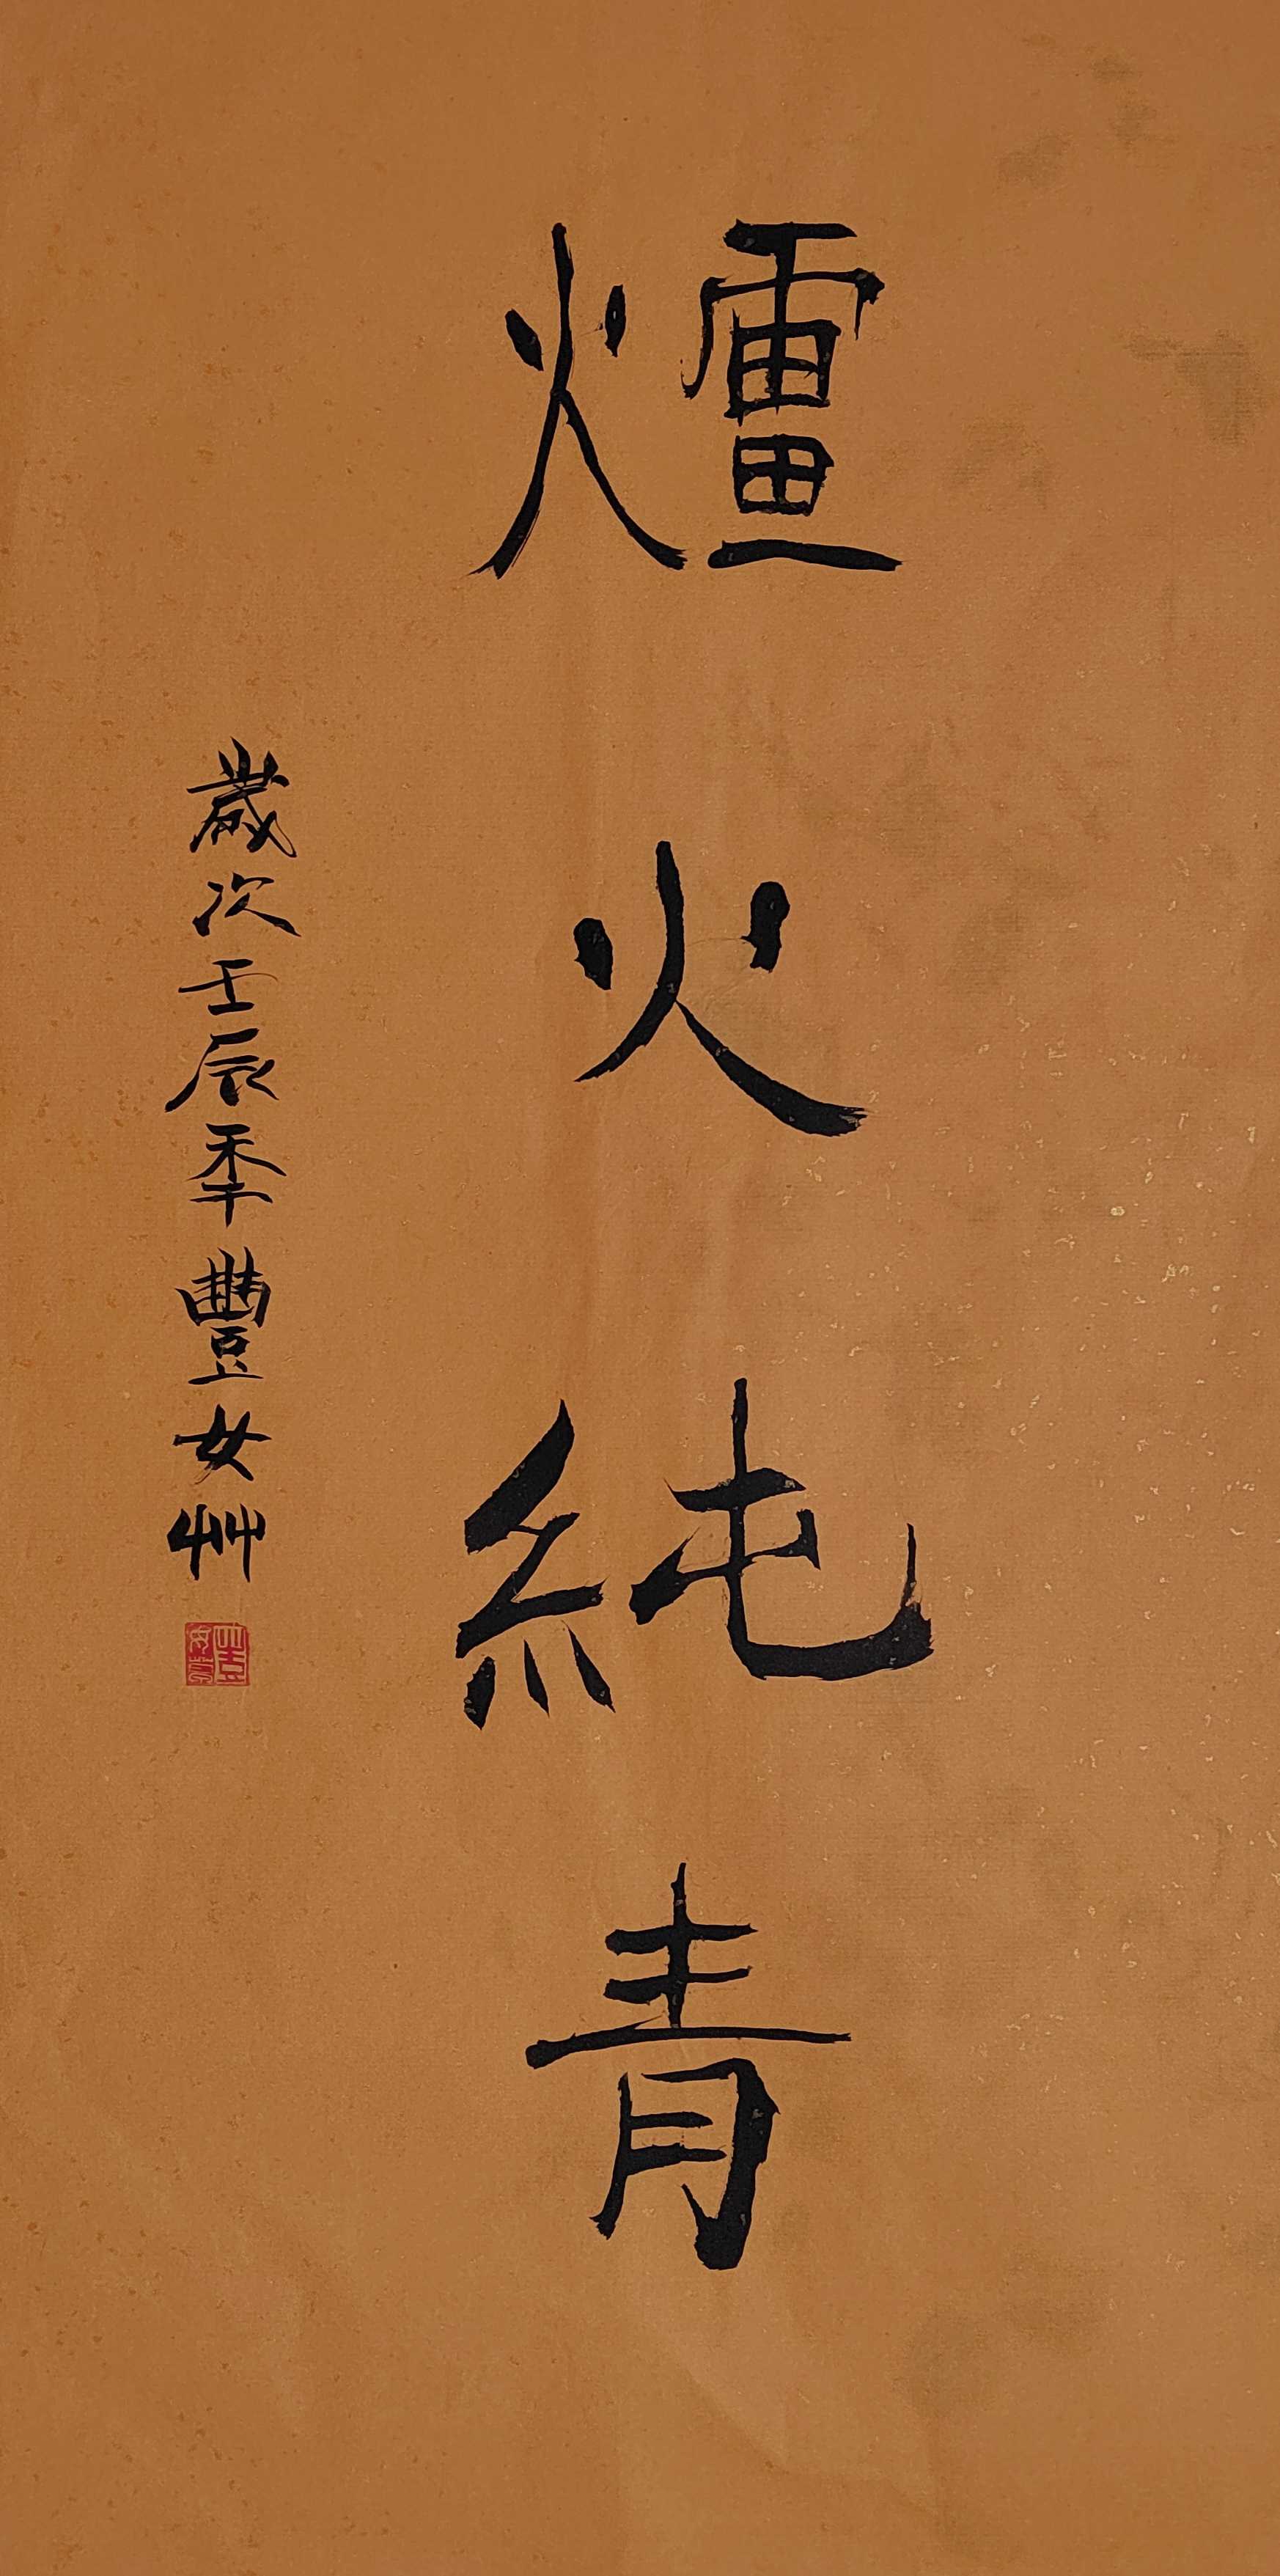 爐火純青
歲次壬辰季豐女艸